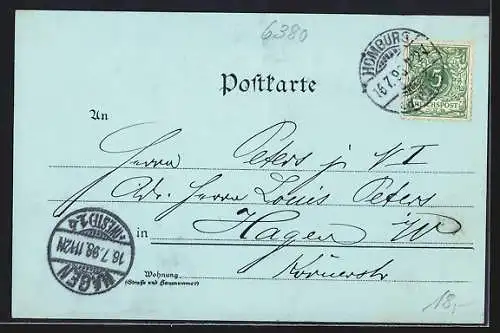 6380
HOMBURG
16.7.98
5
REICHSPOST
Postkarte
An
Herrn Peters j. N I
Adr. Herrn Louis Peters
in Hagen i/W
Körnerstr
Wohnung
(Straße und Hausnummer)
HAGEN
16.7.98.11-12N
(WESTF.)
18,-